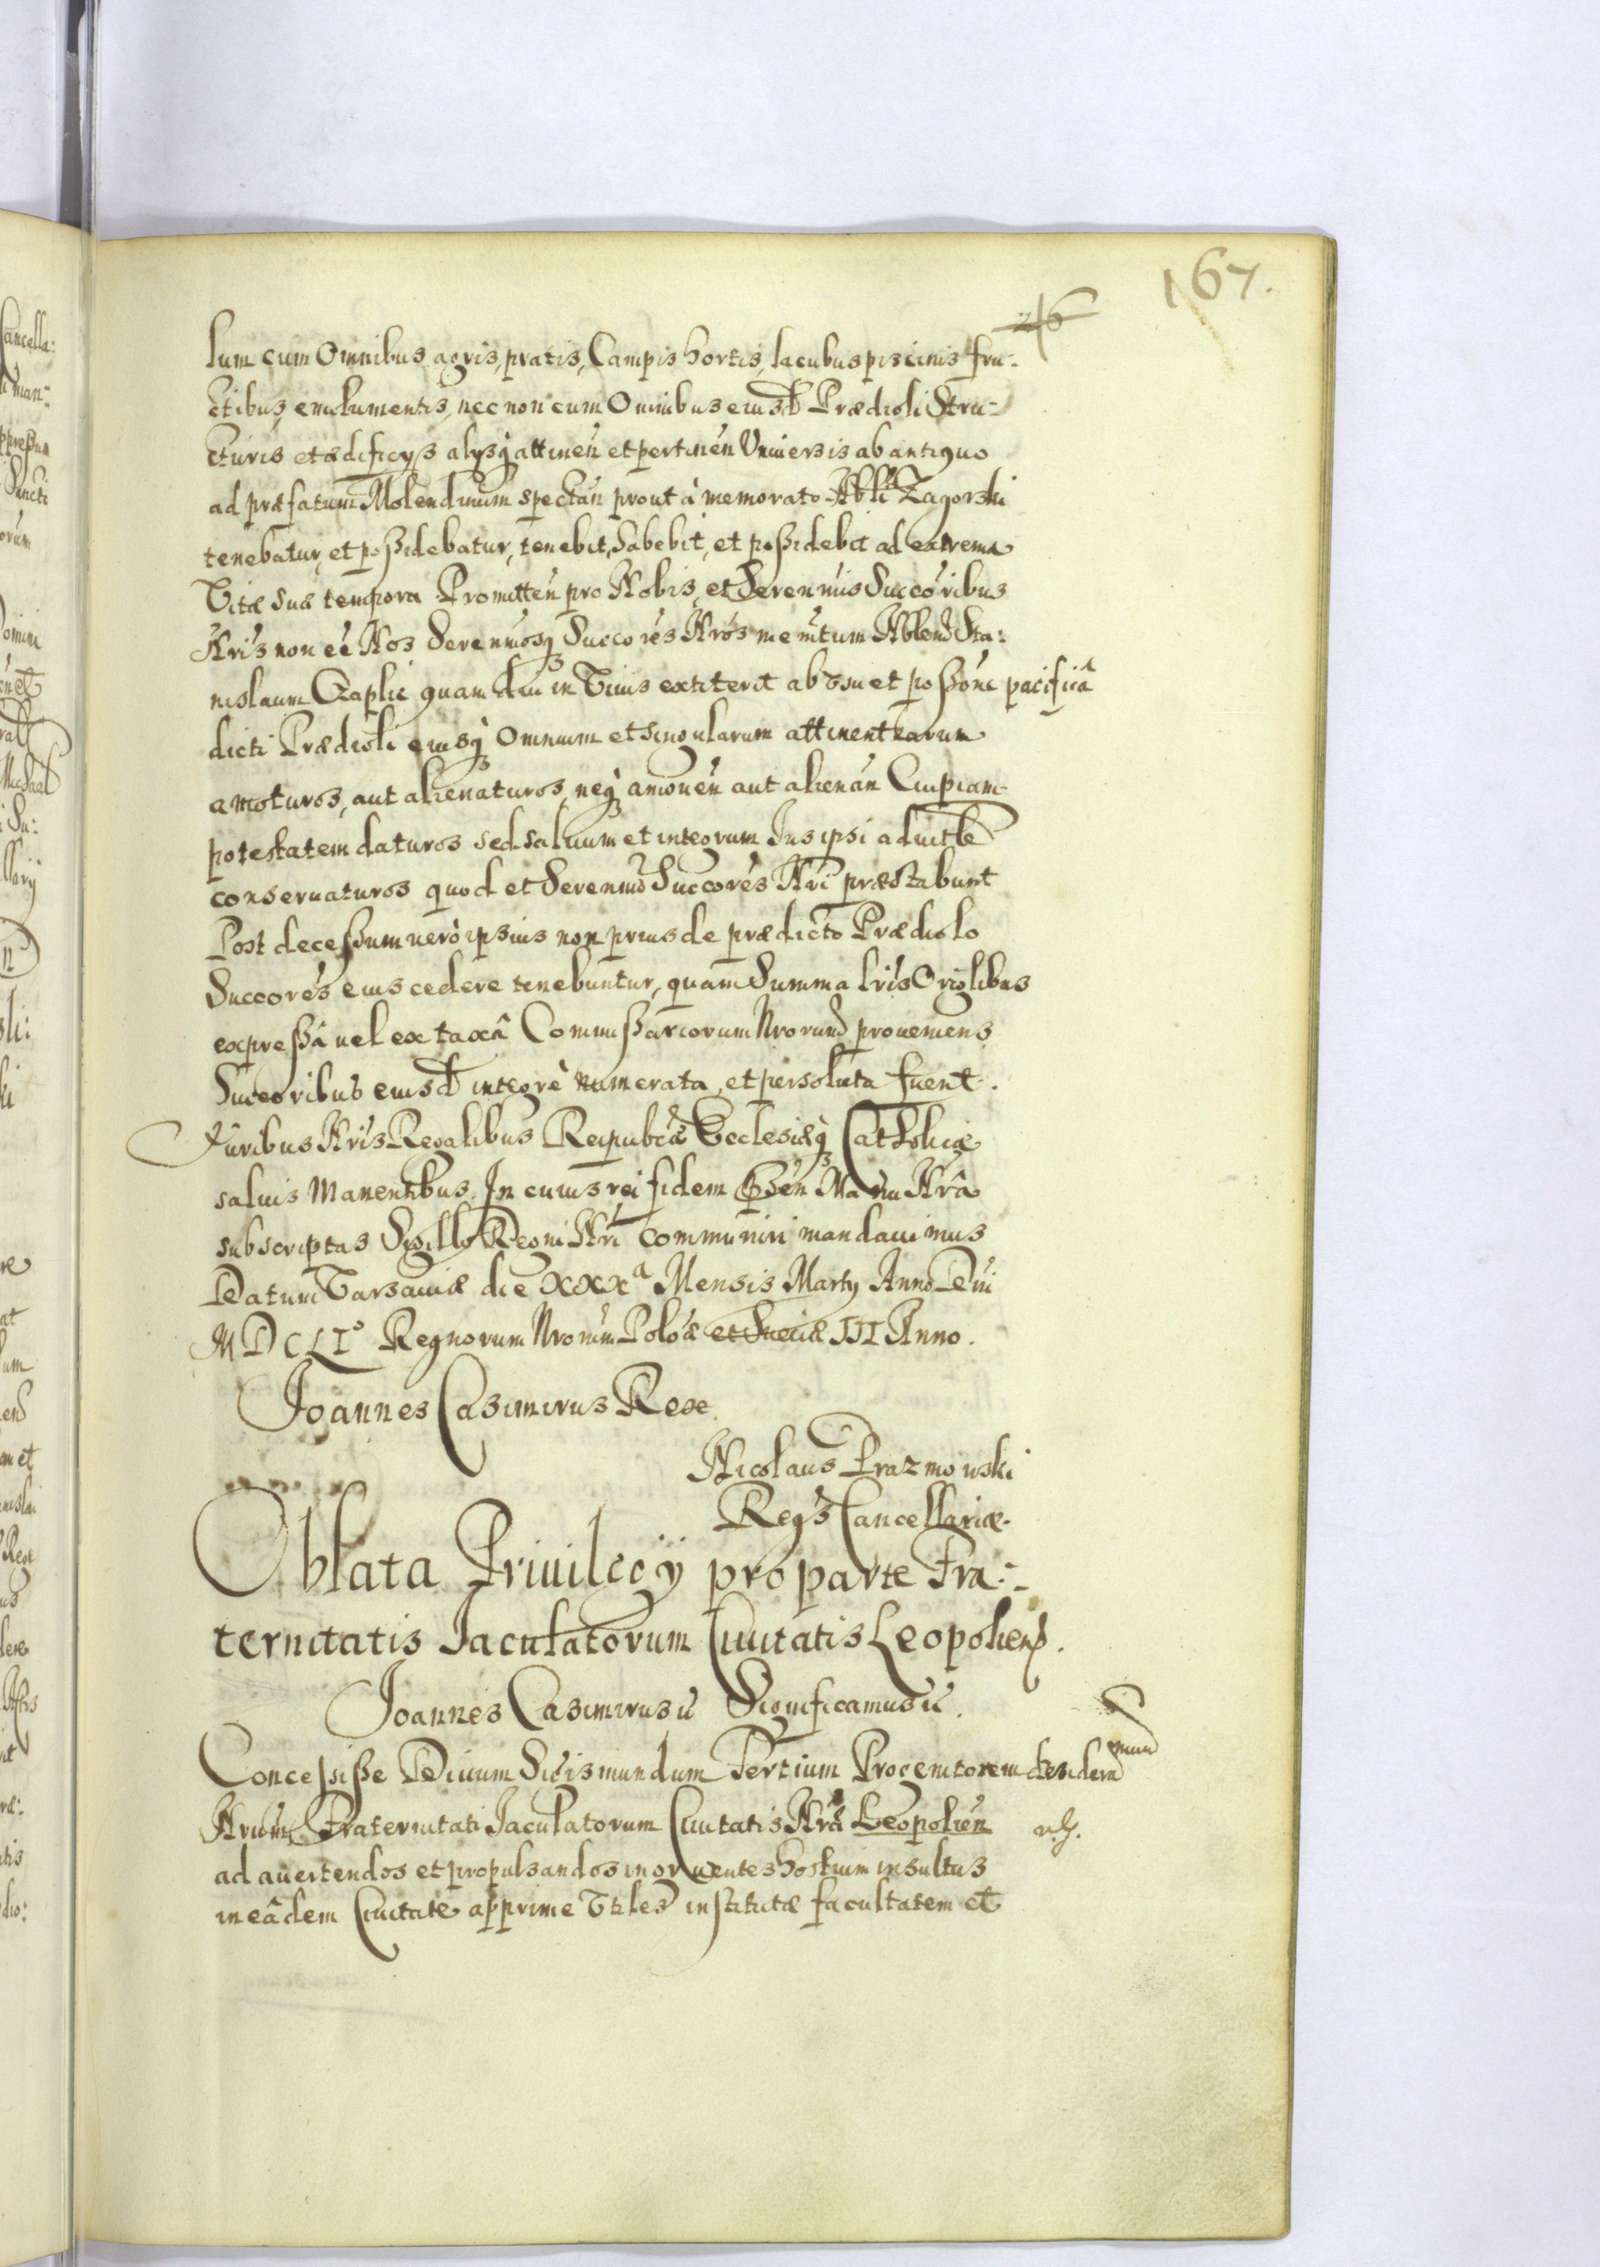 167.
216
lum cum Omnibus agris, pratis, Campis hortis, lacubus piscinis fru-
ctibus, emolumentis, nec non cum Omnibus eiusd Prædioli Stru-
cturis et ædificys alysq attinen et pertinen Vniuersis ab antiquo
ad præfatum Molendinum spectan prout à memorato Nbli Zagorski
tenebatur, et possidebatur, tenebit, habebit, et possidebit ad extrema
Vitæ suæ tempora Promitten pro Nobis, et Serenmis Succoribus
Nris non ee Nos Serenmosq Succores Nros memtum Nblem Sta-
nislaum Czaplic quam diu in Viuis extiterit ab vsu et possone pacificâ
dicti Prædioli eiusq Omnium et singularum attinentiarum
amoturos, aut alienaturos, neq amouen aut alienan Cuipiam
potestatem daturos sed saluum et integrum Ius ipsi aduitle
conseruaturos quod et Serenmi Succores Nri præstabunt
Post decessum uerò ipsius non prius de prædicto Prædiolo
Succores eius cedere tenebuntur, quam Summa lris Origlibus
expressâ uel ex taxâ Commissariorum Nrorum proueniens
Succoribus eiusd integrè numerata et persoluta fuerit.
Iuribus Nris Regalibus Reipubcæ Ecclesiæq Catholicæ
saluis Manentibus. In cuius rei fidem psen Manu Nrâ
subscriptas Sigillo Regni Nri communiri mandauimus
Datum Varsauiæ die XXXa Mensis Marty Anno Dni
MDCLIo Regnorum Nrorum Polo͞æ et Sueciæ III Anno.
Joannes Casimirus Rex
Nicolaus Prazmowski
Regs Cancellariæ
Oblata Priuilegÿ pro parte Fra-
ternitatis Jaculatorum Ciuitatis Leopoliens.
Joannes Casimirus ic Significamus ic.
Concessisse Diuum Sigismundum Tertium Progenitorem desidera
mum
Nrum Fraternitati Jaculatorum Ciuitatis Nræ Leopolien
ad auertendos et propulsandos ingruentes hostium insultus
in eâdem Ciuitate apprime Vtiles institutæ facultatem et